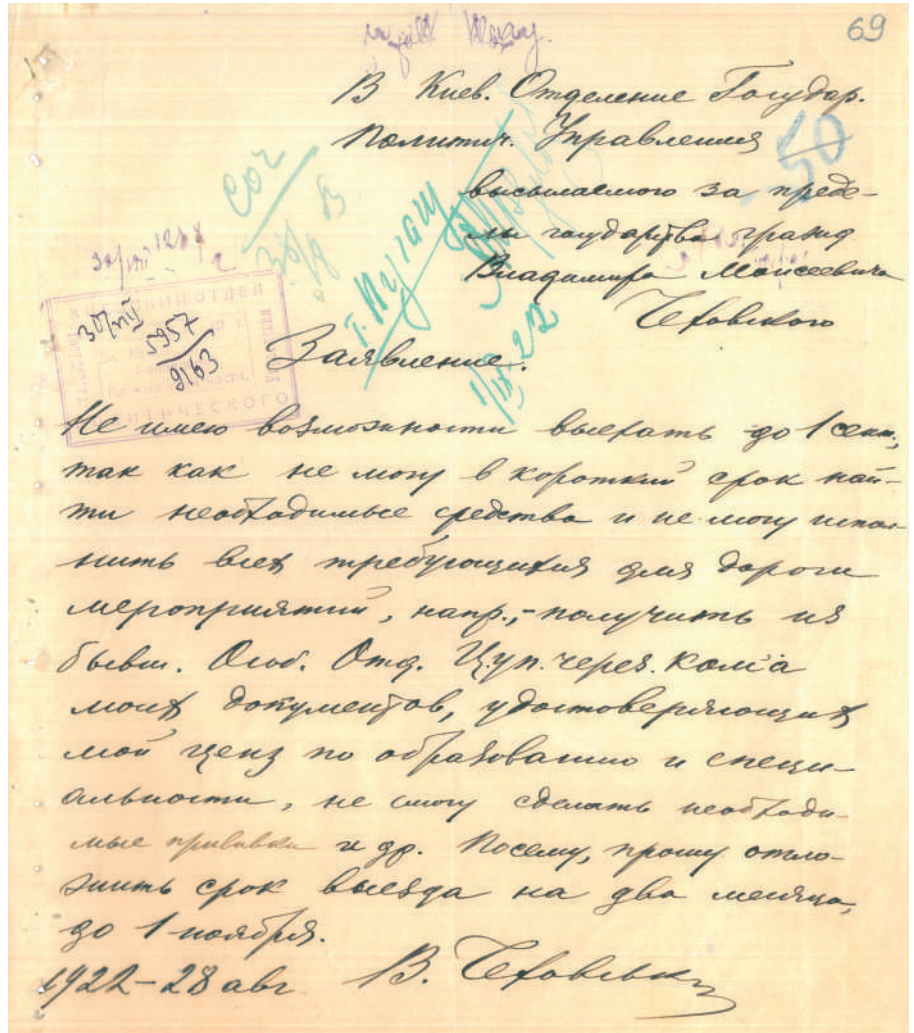 69
В Киев. Отделение Государ.
Политич. Управления
50
высылаемого за преде-
лы государства гражд
Владимира Моисеевича
Чеховского
соч
30/VIII
т. Пугач
1/IX 22
КИЕВСКИЙ ОТДЕЛ
30/VIII
5957
9163
ПОЛИТИЧЕСКОГО
Заявление.
Не имею возможности выехать до 1 сент.,
так как не могу в короткий срок най-
ти необходимые средства и не могу испол-
нить всех требующихся для дороги
мероприятий, напр.,- получить из
бывш. Особ. Отд. Ц.уп.чрез.ком'а
моих документов, удостоверяющих
мой ценз по образованию и специ-
альности, не смогу сделать необходи-
мые прививки и др. Посему, прошу отло-
жить срок выезда на два месяца,
до 1 ноября.
1922-28 авг В. Чеховськ